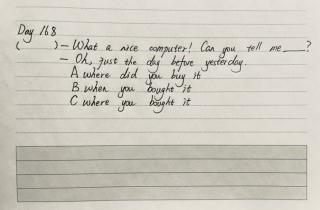 Day 168
( ) — What a nice computer! Can you tell me ____?
— Oh, just the day before yesterday.
A where did you buy it
B. when you bought it
C where you bought it